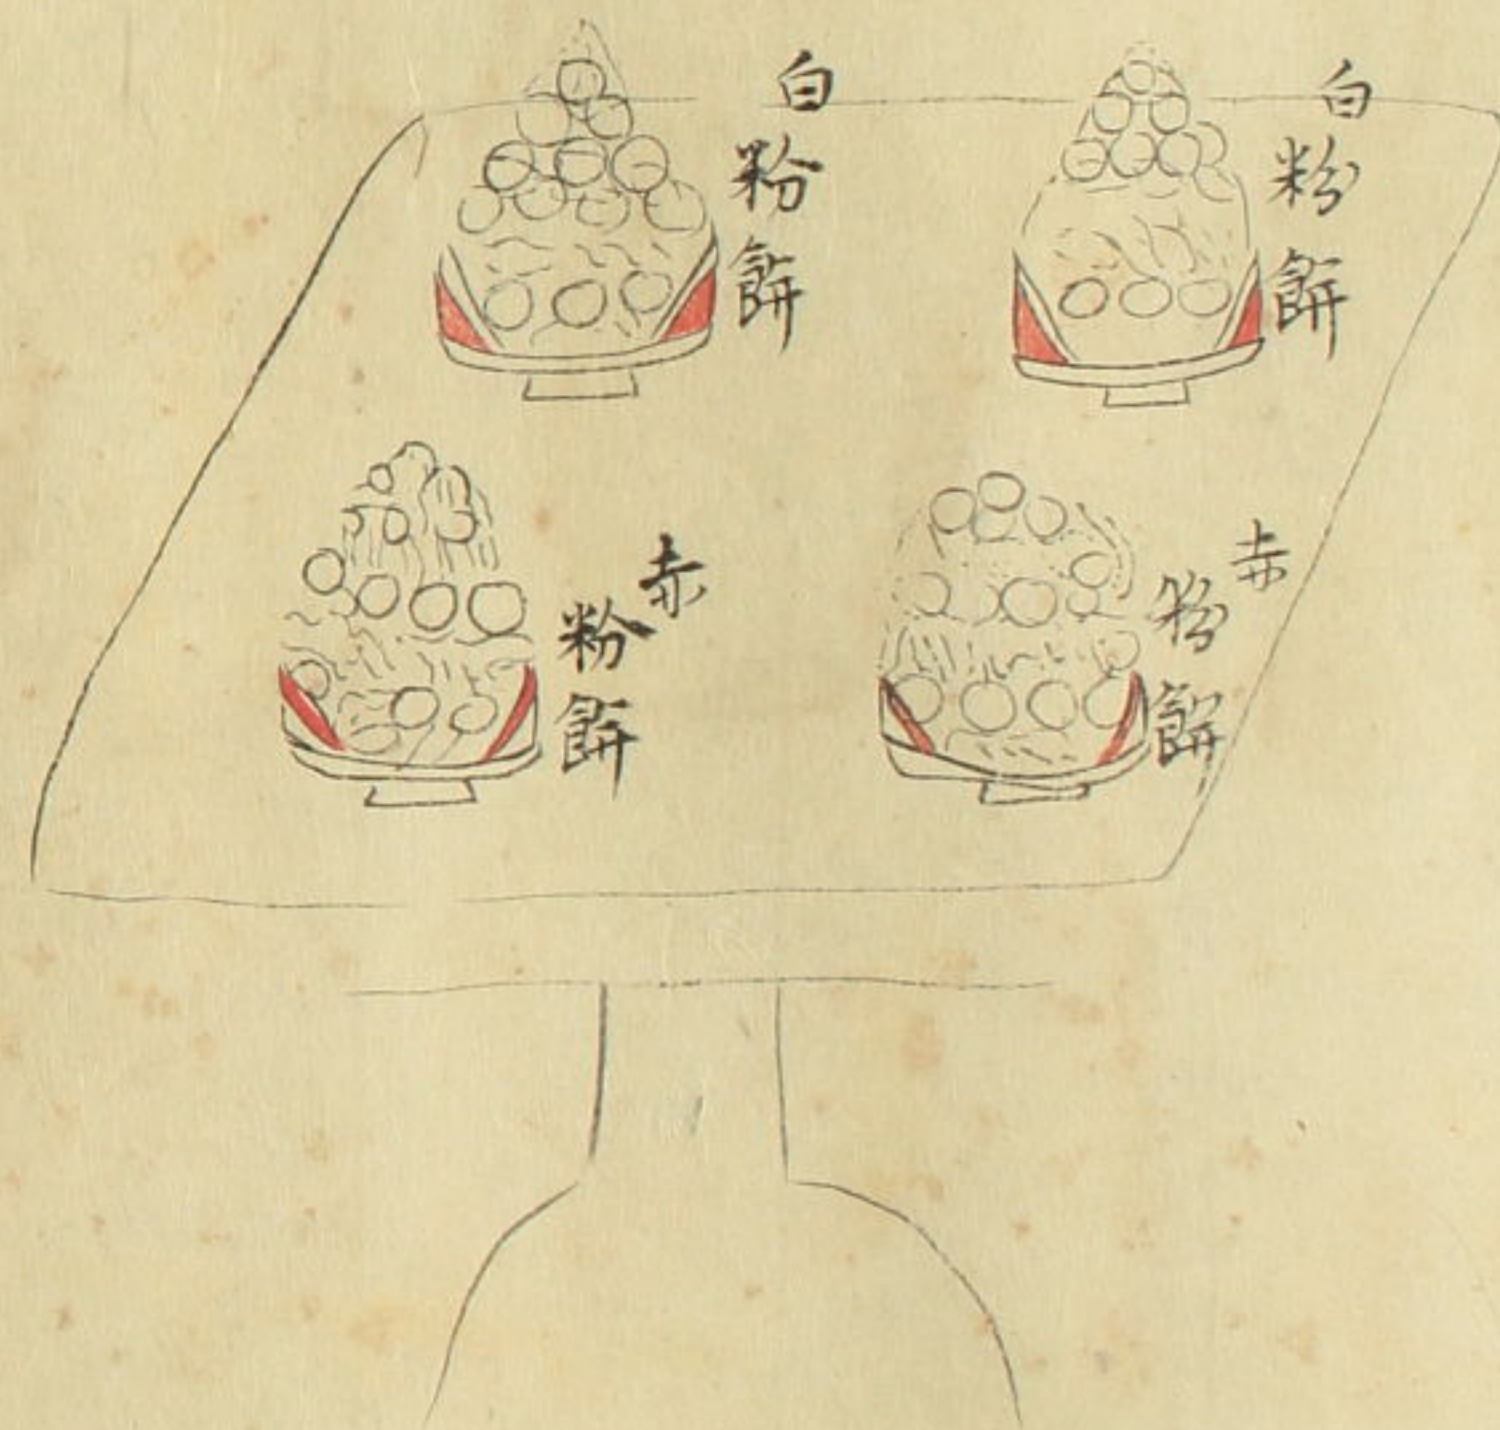 白粉餅
白粉餅
赤粉餅
赤粉餅